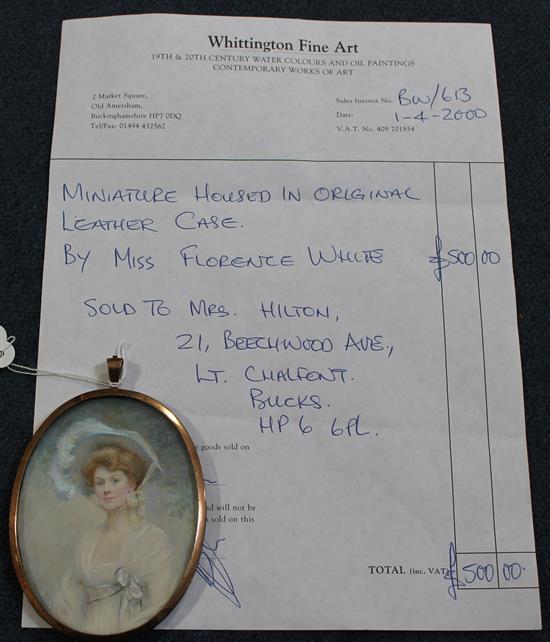 Whittington Fine Art
19TH & 20TH CENTURY WATER COLOURS AND OIL PAINTINGS
CONTEMPORARY WORKS OF ART
2 Market Square,
Old Amersham,
Buckinghamshire HP7 0DQ
Tel/Fax: 01494 432562
Sales Invoice No. BW/613
Date: 1-4-2000
V.A.T. No. 409 701854
MINIATURE HOUSED IN ORIGINAL
LEATHER CASE.
BY MISS FLORENCE WHITE £500 00
SOLD TO MRS. HILTON,
21, BEECHWOOD AVE.,
LT. CHALFONT.
BUCKS.
HP6 6PL.
goods sold on
will not be
sold on this
TOTAL (inc. VAT) £500 00.